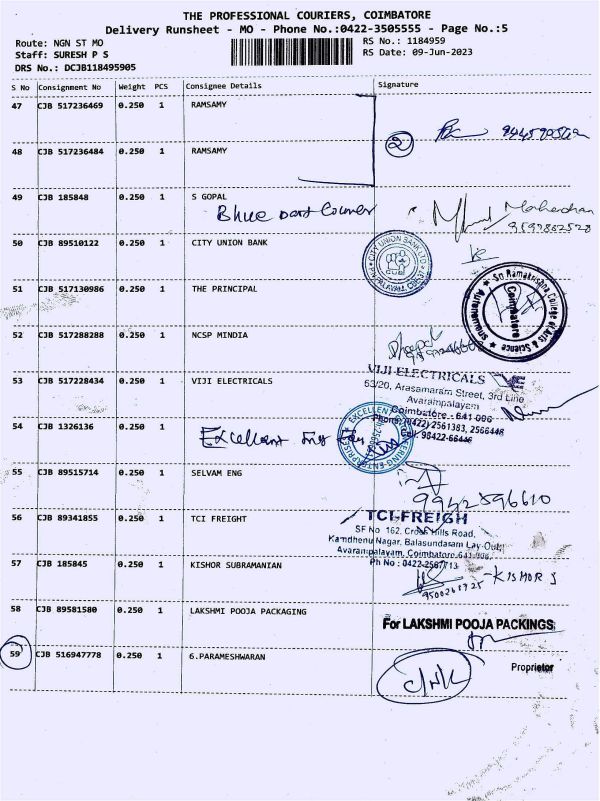 THE PROFESSIONAL COURIERS, COIMBATORE
Delivery Runsheet - MO - Phone No.:0422-3505555 - Page No.:5
Route: NGN ST MO
RS No.: 1184959
Staff: SURESH P S
RS Date: 09-Jun-2023
DRS No.: DCJB118495905
S No Consignment No Weight PCS Consignee Details Signature
47 CJB 517236469 0.250 1 RAMSAMY
2
48 CJB 517236484 0.250 1 RAMSAMY
49 CJB 185848 0.250 1 S GOPAL
Bhue Dart Courier
50 CJB 89510122 0.250 1 CITY UNION BANK
CITY UNION BANK LTD
51 CJB 517130986 0.250 1 THE PRINCIPAL
Sri Ramakrishna College of Arts & Science
Autonomous
Coimbatore
52 CJB 517288288 0.250 1 NCSP MINDIA
53 CJB 517228434 0.250 1 VIJI ELECTRICALS
VIJI ELECTRICALS VE
63/20, Arasamaram Street, 3rd Line
Avarampalayam
Coimbatore - 641 006
Phone: (0422) 2561383, 2566448
Cell: 98422-66446
54 CJB 1326136 0.250 1
Excellent
55 CJB 89515714 0.250 1 SELVAM ENG
9942596610
56 CJB 89341855 0.250 1 TCI FREIGHT
TCI-FREIGH
SF No 162, Cross Hills Road,
Kamdhenu Nagar, Balasundaram Lay-Out,
Avarampalayam, Coimbatore-641 006
Ph No : 0422-2567713
57 CJB 185845 0.250 1 KISHOR SUBRAMANIAN
KISHOR S
58 CJB 89581580 0.250 1 LAKSHMI POOJA PACKAGING
For LAKSHMI POOJA PACKINGS
59 CJB 516947778 0.250 1 6.PARAMESHWARAN
Proprietor